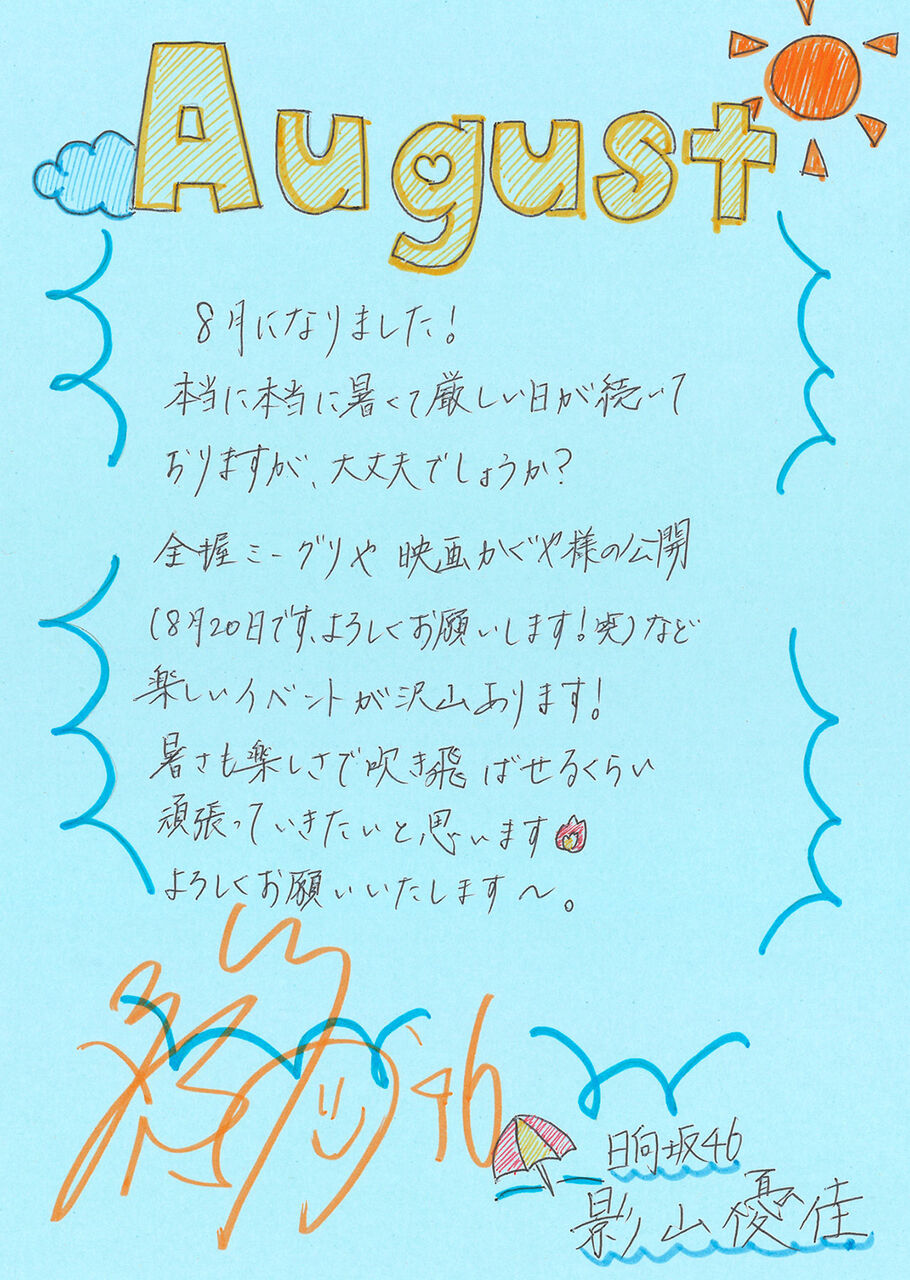 August
8月になりました!
本当に本当に暑くて厳しい日が続いて
おりますが、大丈夫でしょうか?
全握ミーグリや映画かぐや様の公開
(8月20日です、よろしくお願いします!笑)など
楽しいイベントが沢山あります!
暑さも楽しさで吹き飛ばせるくらい
頑張っていきたいと思います
よろしくお願いいたします〜。
46
日向坂46
影山優佳